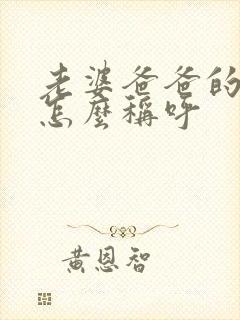 老婆爸爸的
怎麼稱呼
黃恩智